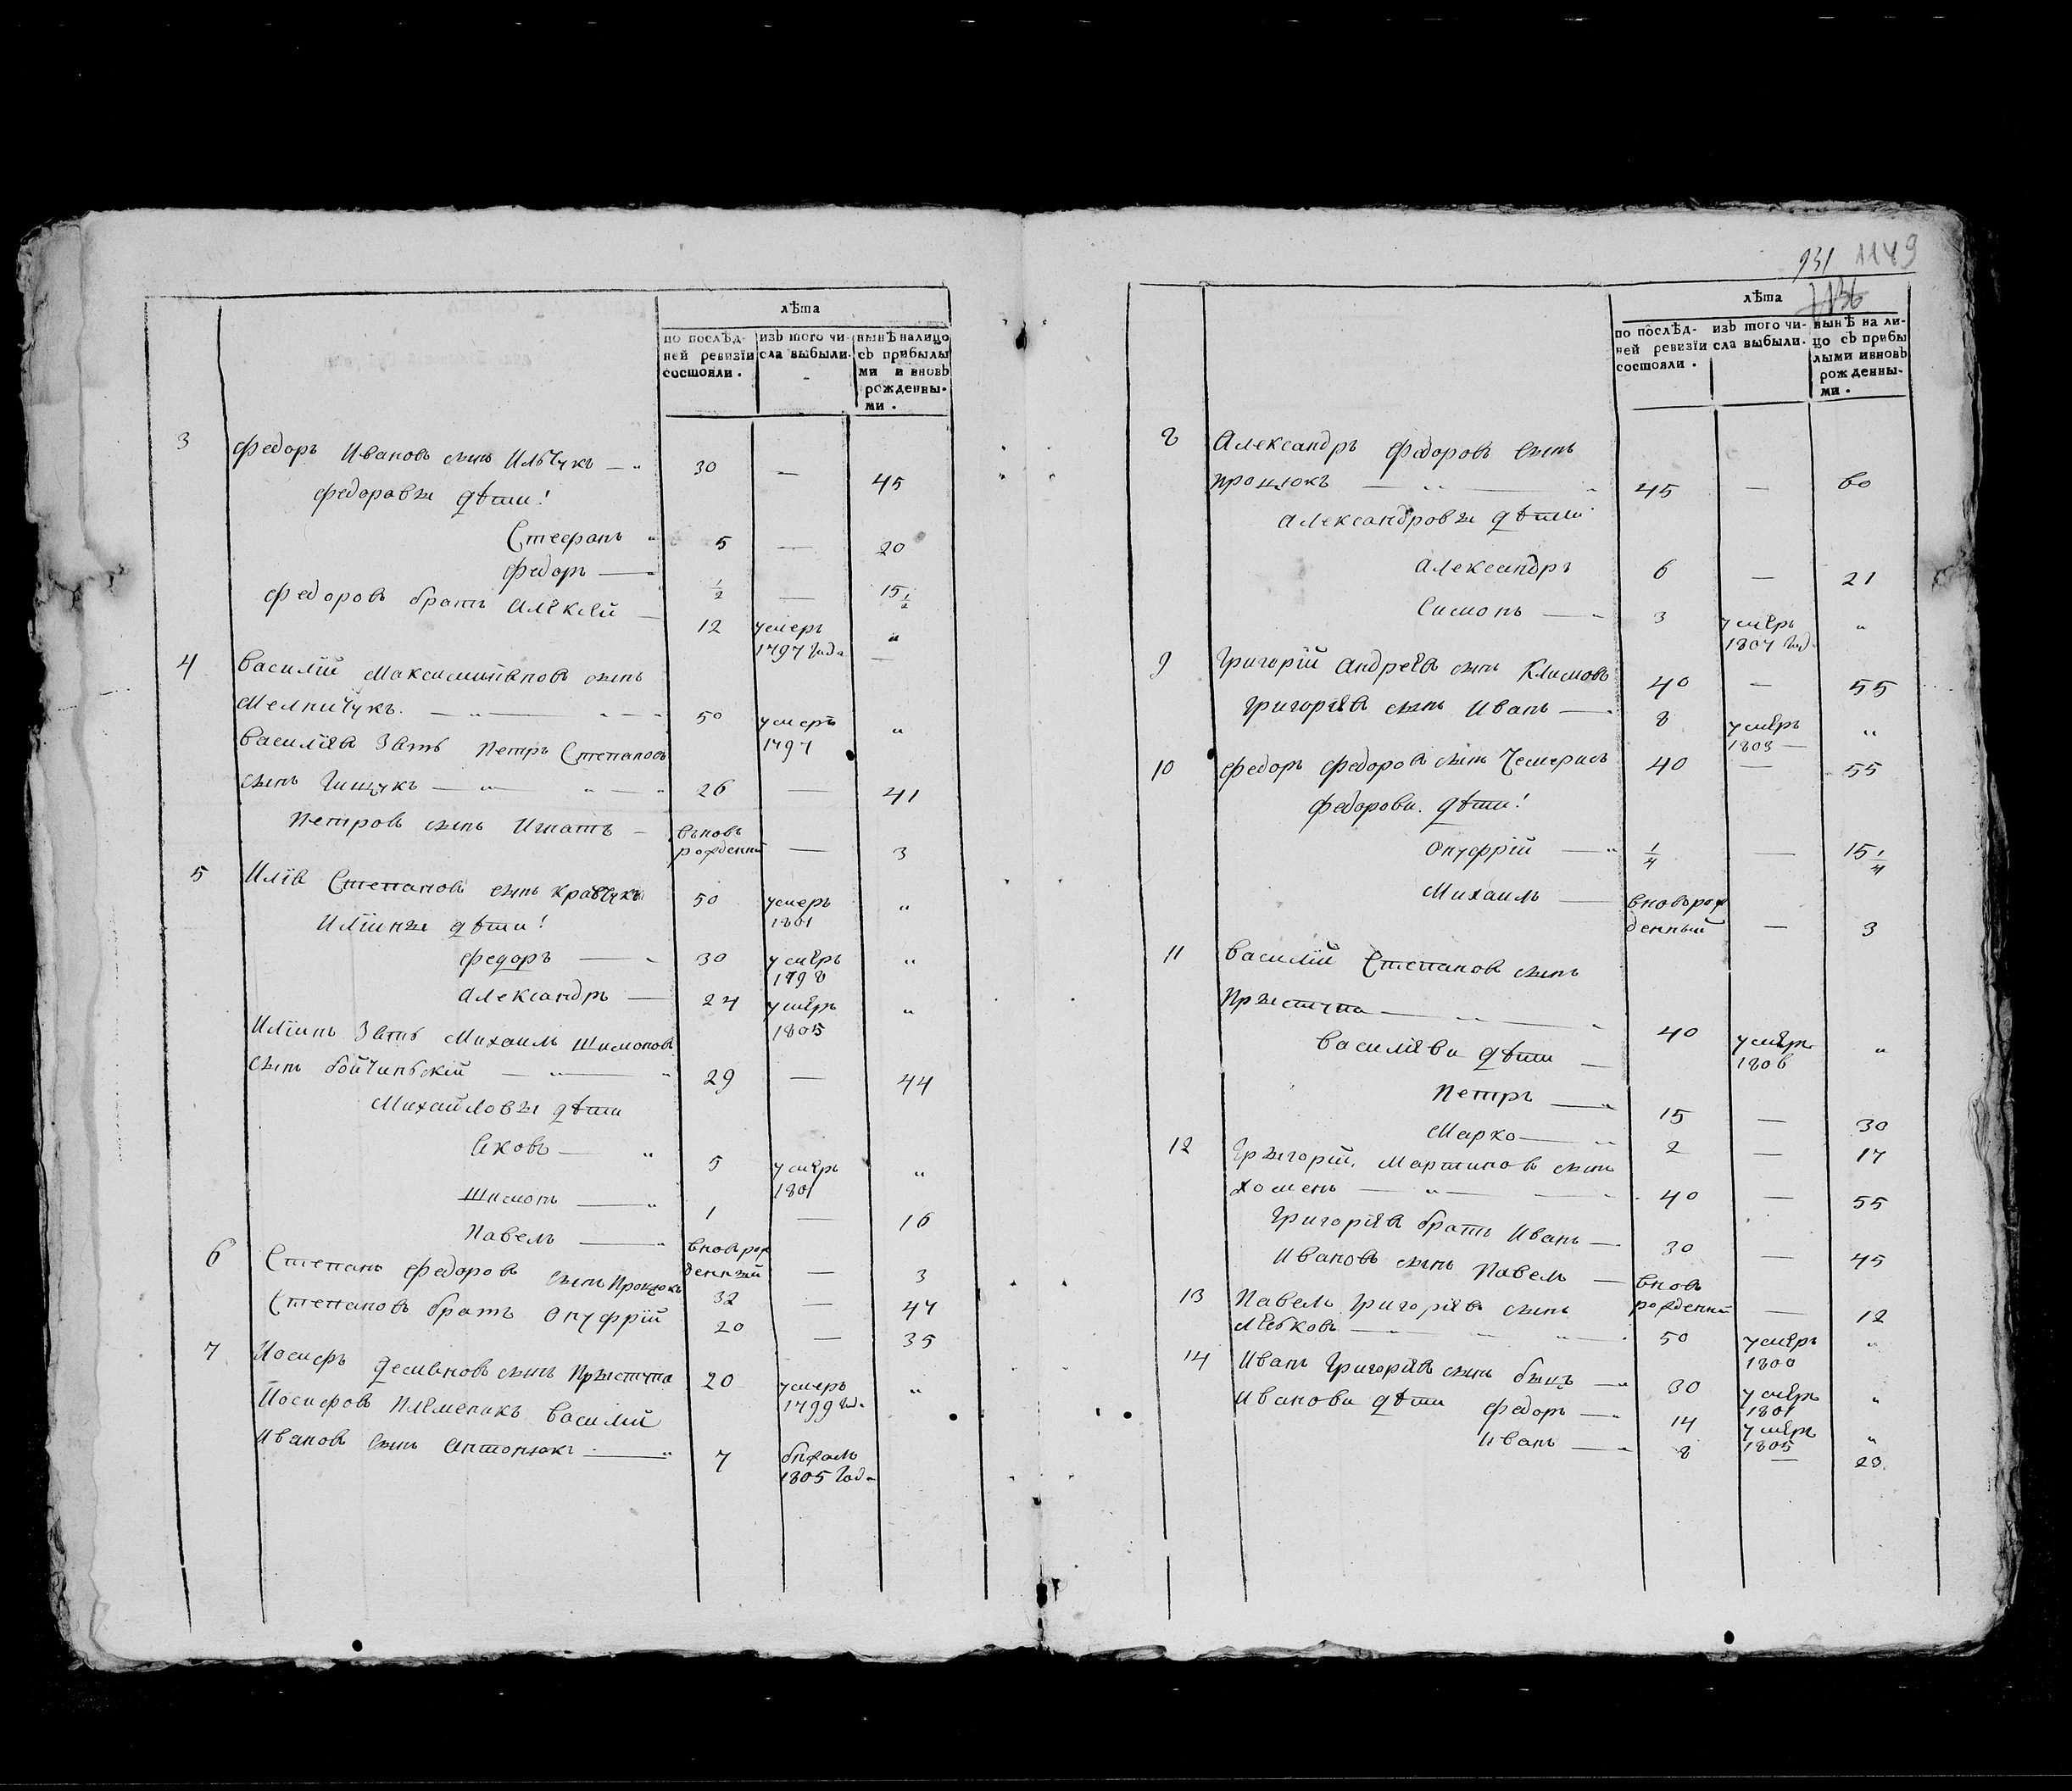 лѣта
по послѣд- изъ того чи- нынѣ налицо
ней ревизїи сла выбыли. съ прибылы
состояли. ми и вновь
рожденны-
ми.
3 Федоръ Ивановъ сынъ Ильчукъ — „ 30 — 45
Федоровы дѣти!
Стефанъ „ 5 — 20
Федоръ — „ 1/2 — 15 1/2
Федоровъ братъ Алексѣй — 12 умеръ „
1797 Года —
4 Василїй Максимилїановъ сынъ
Мелничукъ. — „ — „ — 50 умеръ „
1797
Василїевъ Зять Петръ Степановъ
сынъ Гищукъ — „ — „ — „ 26 — 41
Петровъ сынъ Игнатъ — вновь
рожденный — 3
5 Илїя Степановъ сынъ Кравчукъ 50 умеръ „
1801
Илїины дѣти!
Федоръ — „ 30 умеръ „
1798
Александръ — 24 умеръ „
1805
Илїинъ Зять Михаилъ Шимоновъ
сынъ Бойчинскїй — „ — „ 29 — 44
Михайловы дѣти
Яковъ — „ 5 умеръ „
1801
Шимонъ — „ 1 — 16
Павелъ — „ вноврож
денный — 3
6 Степанъ Федоровъ сынъ Процюкъ 32 — 47
Степановъ братъ Онуфрїй 20 — 35
7 Иосифъ Демяновъ сынъ Прыступа 20 умеръ „
1799 Года
Иосифовъ племеникъ Василїй
Ивановъ сынъ Антонюкъ — „ 7 бѣжалъ
1805 Года
931 1149
лѣта
по послѣд- изъ того чи- нынѣ на ли-
ней ревизїи сла выбыли. цо съ прибы
состояли. лыми ивновь
рожденны-
ми.
8 Александръ Федоровъ сынъ
Процюкъ — „ — „ 45 — 60
Александровы дѣти
Александръ 6 — 21
Симонъ — „ 3 умеръ „
1807 Год.
9 Григорїй Андреевъ сынъ Климовъ 40 — 55
Григорїевъ сынъ Иванъ — 8 умеръ „
1803 —
10 Федоръ Федоровъ сынъ Чемерисъ 40 — 55
Федорови. дѣти!
Онуфрїй — „ 1/4 — 15 1/4
Михаилъ — вновьрож
денный — 3
11 Василїй Степановъ сынъ
Прыступа — „ — „ 40 умеръ „
1806
Василїеви дѣти —
Петръ — „ 15 — 30
Марко — „ 2 — 17
12 Грыгорїй. Мартиновъ сынъ
Хоменъ — „ — „ 40 — 55
Григорїевъ братъ Иванъ — 30 — 45
Ивановъ сынъ Павелъ — вновь
рожденный — 12
13 Павелъ Григорїевъ сынъ
— „ — „ 50 умеръ „
1800
14 Иванъ Григорїевъ сынъ — „ 30 умеръ „
1801
Иванови дѣти Федоръ — „ 14 умеръ „
1805
Иванъ — „ 8 — 23.